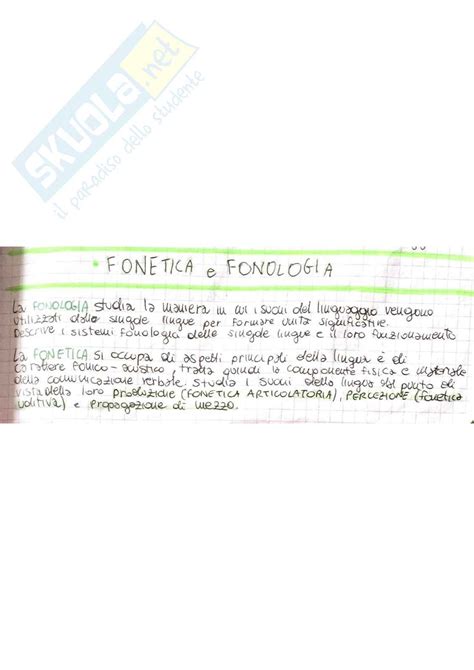 SKUOLA.net
il paradiso dello studente
• FONETICA e FONOLOGIA
La FONOLOGIA studia la maniera in cui i suoni del linguaggio vengono
utilizzati dalle singole lingue per formare unità significative.
Descrive i sistemi fonologici delle singole lingue e il loro funzionamento
La FONETICA si occupa di aspetti principali della lingua è di
carattere fonico-acustico, tratta quindi la componente fisica e materiale
della comunicazione verbale. Studia i suoni della lingua dal punto di
vista della loro produzione (FONETICA ARTICOLATORIA), PERCEZIONE (fonetica
uditiva) e propagazione di mezzo.